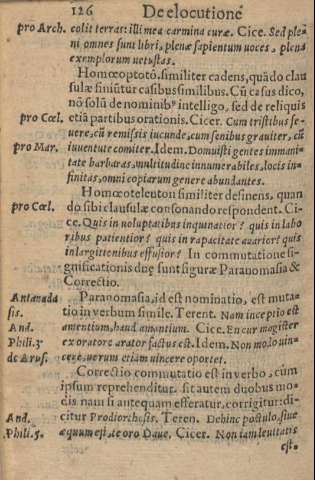 126 De elocutione
pro Arch. colit terras: illi mea carmina curæ. Cice. Sed ple-
ni omnes sunt libri, plenæ sapientum uoces, plena
exemplorum uetustas.
Homœoptotō. similiter cadens, quādo clau
sulæ finiūtur casibus similibus. Cū casus dico,
nō solū de nominibꝰ intelligo, sed de reliquis
etiā partibus orationis. Cicer. Cum tristibus se-
pro Cœl. uere, cū remissis iucunde, cum senibus grauiter, cū
pro Mar. iuuentute comiter. Idem. Domuisti gentes immani-
tate barbaras, multitudine innumerabiles, locis in-
finitas, omni copiarum genere abundantes.
Homœoteleuton similiter desinens, quan
pro Cœl. do sibi clausulæ consonando respondent. Ci-
ce. Quis in uoluptatibus inquinatior? quis in labo
ribus patientior? quis in rapacitate auarior? quis
in largitionibus effusior? In commutatione si-
gnificationis duę sunt figuræ Paranomasia &
Correctio.
Antanada Paranomasia, id est nominatio, est muta-
sis. tio in verbum simile. Terent. Nam inceptio est
And. amentium, haud amantium. Cice. En cur magister
Phili. 3. ex oratore arator factus est. Idem. Non modo uin-
de Arus. cere, uerum etiam uincere oportet.
Correctio commutatio est in verbo, cùm
ipsum reprehenditur. sit autem duobus mo-
dis. nam si antequam efferatur, corrigitur: di-
And. citur Prodiorthosis. Teren. Dehinc postulo, siue
Phili. 5. æquum est, te oro Daue. Cicer. Non iam leuitatis
est.